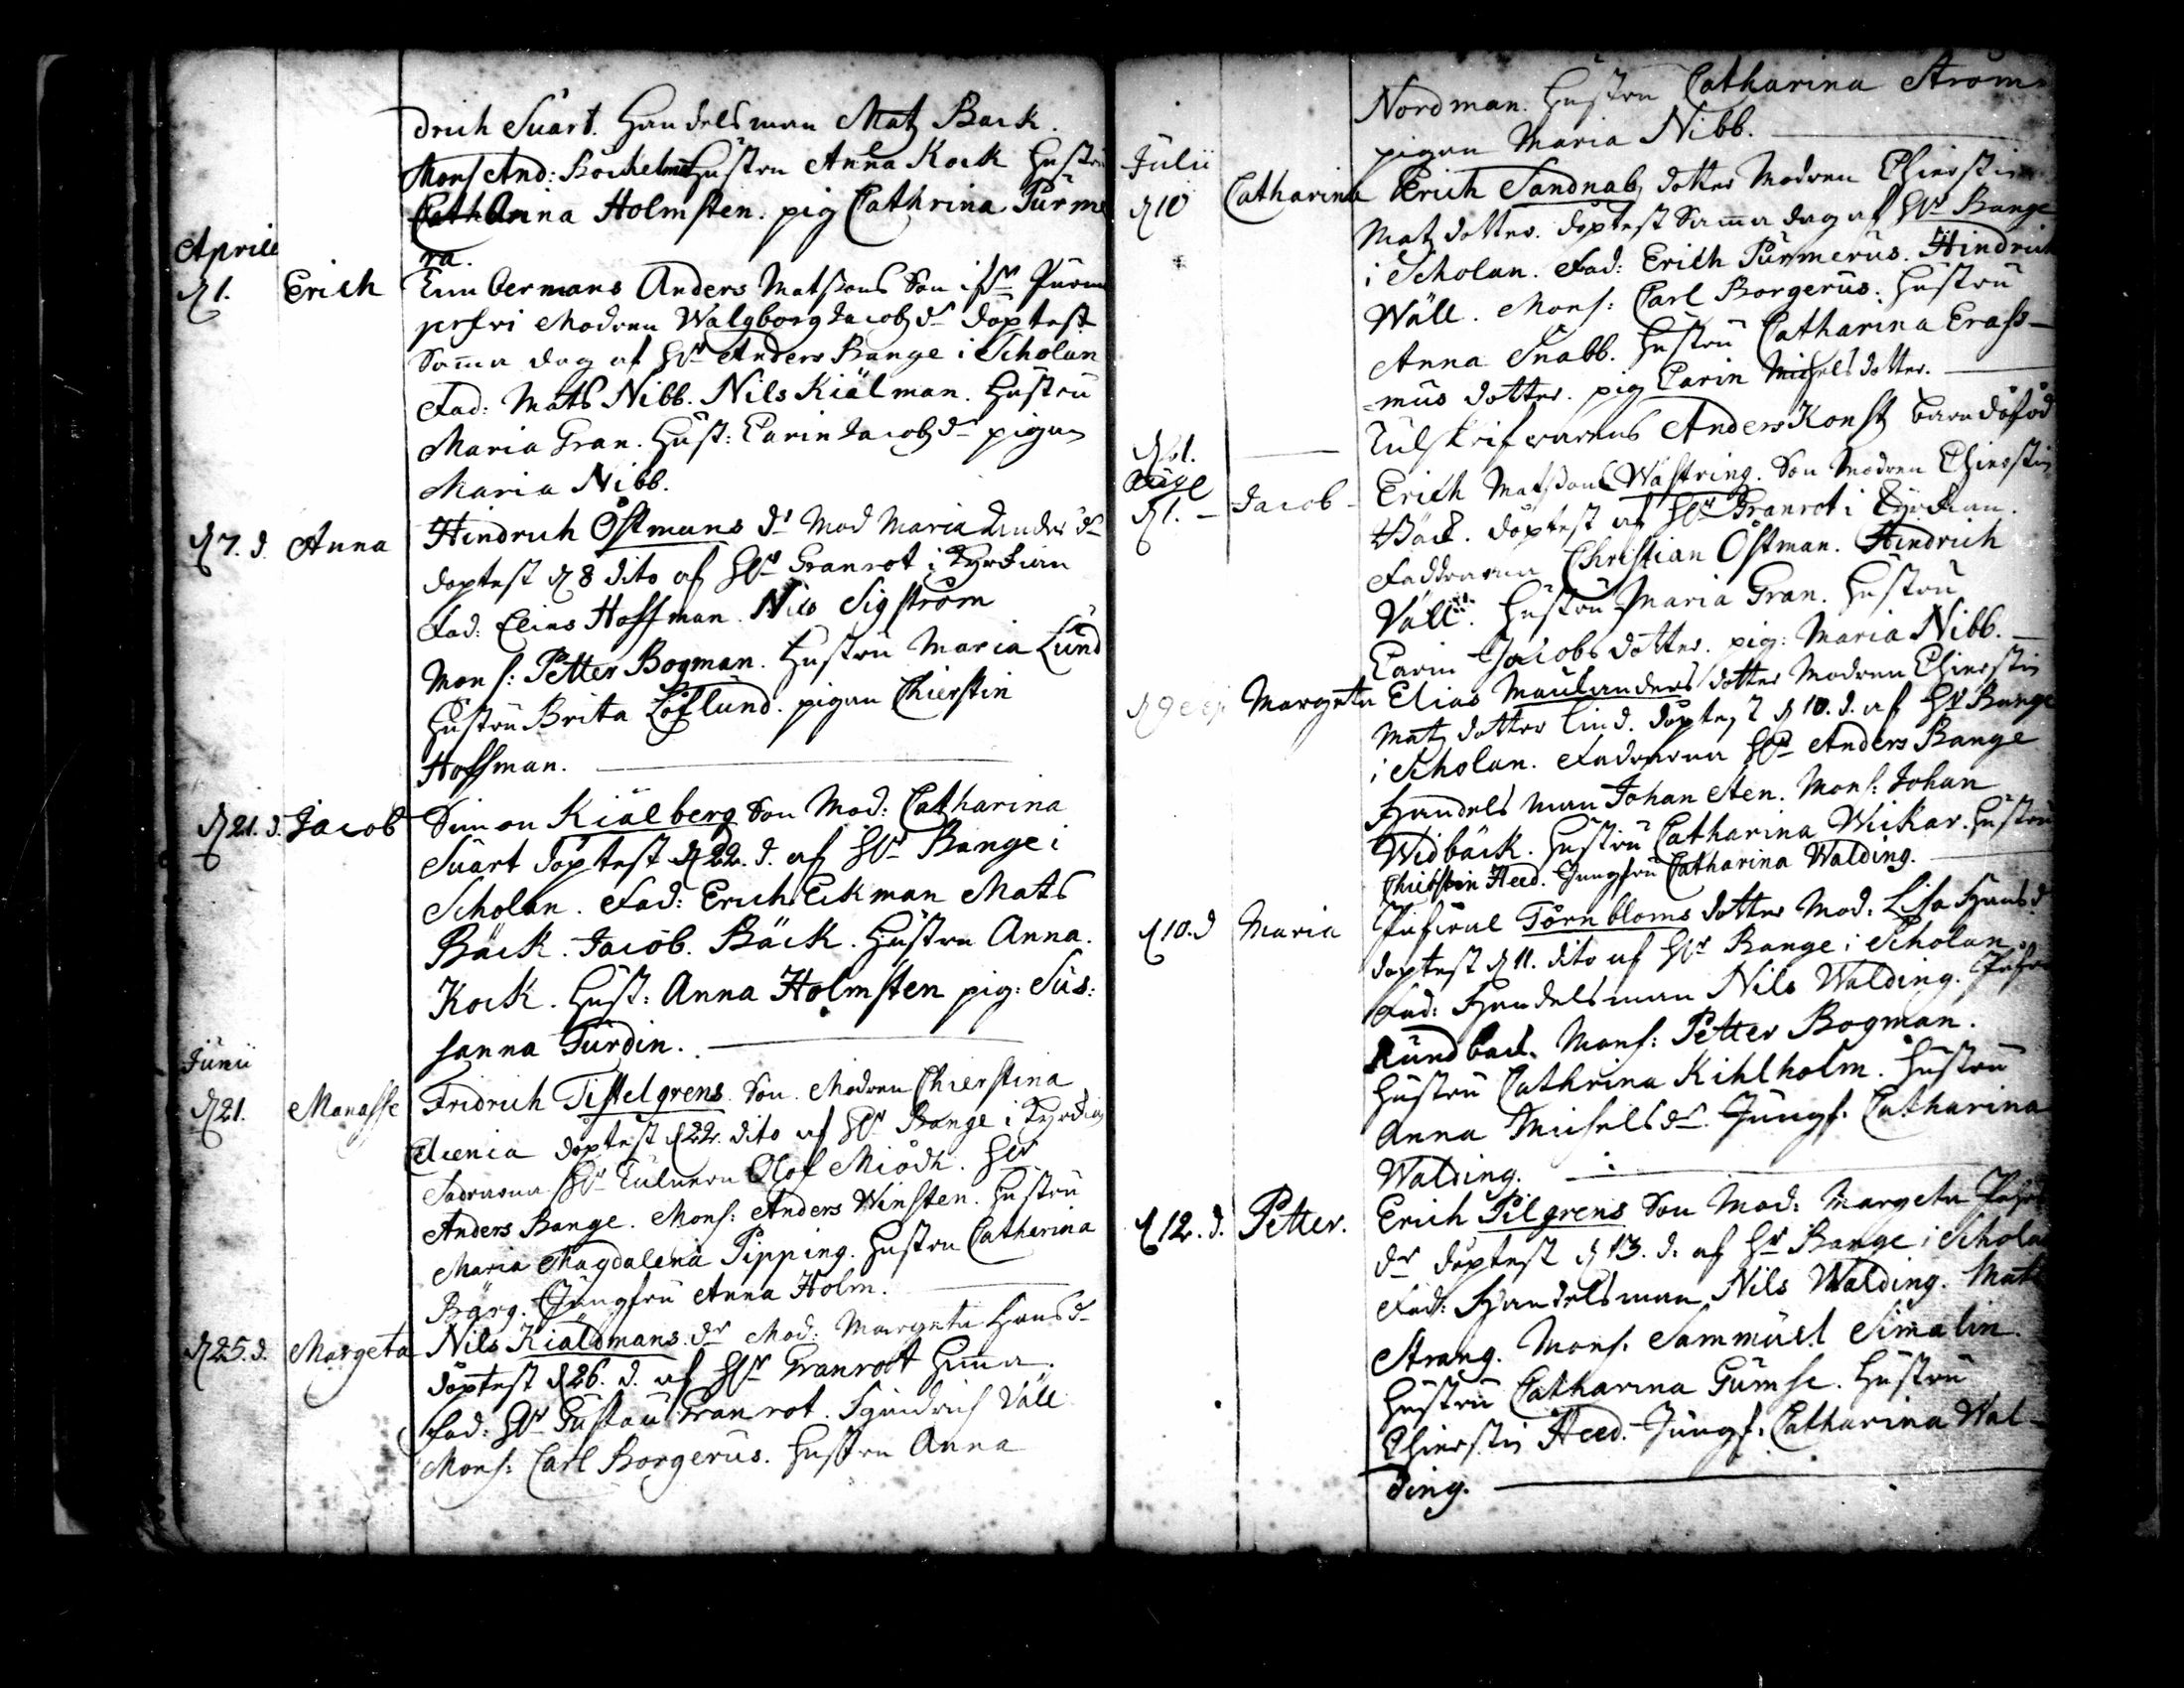 drich Suart. Handelsman Matz Back.
Mons And: Bochelm Hustru Anna Kock Hustru
Catharina Holmsten. pig Cathrina Purme
ra.
Aprill
d 1. Erich Timbermans Anders Matssons Son
Modren Walgborg Jacobz dr döptest
Samma dag af Hr Anders Bange i Scholan
Fad: Mats Nibb. Nils Kiälman. Hustru
Maria Gran. Hust: Carin Jacobz dr pigan
Maria Nibb.
d 7. d. Anna Hindrich Östmans dr Mod Maria Anders dr
döptest d 8 dito af Hr Granrot i Kyrkian
Fad: Elias Hoffman. Nils Sigström
Mons: Petter Bogman. Hustru Maria Lund
Hustru Brita Löflund. pigan Chierstin
Hoffman.
d 21. d. Jacob Simon Kiälberg Son Mod: Catharina
Suart döptest d 22. d. af Hr Bange i
Scholan. Fad: Erich Eckman Mats
Bäck. Jacob. Bäck. Hustru Anna.
Kock. Hust: Anna Holmsten pig: Sus:
sanna Turdin.
Junii
d 21. Manasse Fridrich Tistelgrens. Son. Modren Chierstina
döptest d 22. dito af Hr Bange i Kyrkian
Fadrarna Hr Tulnern Olof Miödh. Hr
Anders Bange. Mons: Anders Winsten. Hustru
Maria Magdalena Pipping. Hustru Catharina
Bärg. Jungfru Anna Holm.
d 25. d. Margeta Nils Kiäldmans dr Mod: Margeta Hans dr
döptest d 26. d. af Hr Granrot Hema.
Fad: Hr Gustau Granrot. Hindrich Väll
Mons: Carl Borgerus. Hustru Anna
Nordman. Hustru Catharina Ström
pigan Maria Nibb.
Julii
d 10 Catharina Erich Sandnabz dotter Modren Chierstin
Matz dotter. döptest Samma dag af Hr Bange
i Scholan. Fad: Erich Purmerus. Hindrich
Wäll. Mons: Carl Borgerus. Hustru
Anna Snabb. Hustru Catharina Erass-
=mus dotter. pig Carin Michels dotter.
Tulskrifvarens Anders Konstz barn dödfödt
Aug
d 1. Jacob Erich Matssons Wästring. Son Modren Chierstin
Bäck. döptest af Hr Granrot i Kyrkian.
Faddrarna Christian Östman. Hindrich
Väll. Hustru Maria Gran. Hustru
Carin Jacobs dotter. pig: Maria Nibb.
Margeta Elias Maulanders dotter Modren Chierstin
Matz dotter Lind. döptest d 10. d. af Hr Bange
i Scholan. Fadrarna Hr Anders Bange
Handels man Johan Aten. Mons: Johan
Widbäck. Hustru Catharina Wickar. Hustru
Chierstin Heed. Jungfru Catharina Walding.
d 10. d Maria Törnbloms dotter Mod. Lisa Hans d
döptest d 11. dito af Hr Bange i Scholan.
Fad: Handelsman Nils Walding.
Rundback. Mons: Petter Bogman.
Hustru Cathrina Kihlholm. Hustru
Anna Michels dr Jungf. Catharina
Walding.
d 12. d. Petter. Erich Pilgrens Son Mod: Margeta
dr döptest d 13. d. af Hr Bange i Schola
Fad: Handelsman Nils Walding. Mats
Strang. Mons. Sammuel Simalin.
Hustru Catharina Gumse. Hustru
Chierstin Heed. Jungf. Catharina Wal-
ding.